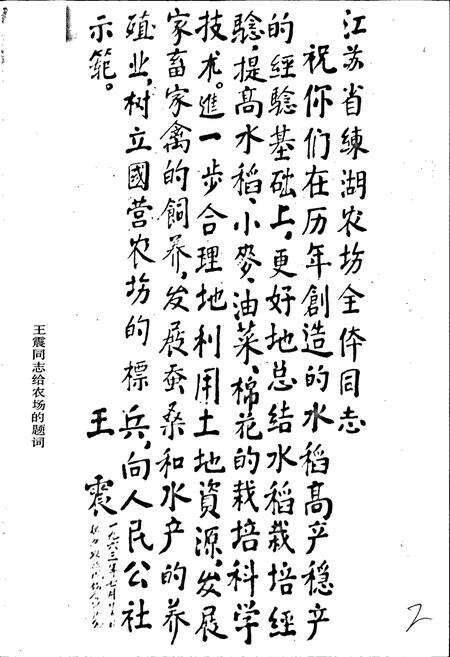 江苏省練湖农场全体同志
祝你们在历年創造的水稻高产穩产
的經驗基础上,更好地总结水稻栽培經
驗,提高水稻、小麥、油菜、棉花的栽培科学
技术。進一步合理地利用土地資源,发展
家畜家禽的飼养,发展蚕桑和水产的养
殖业,树立國营农场的標兵,向人民公社
示範。
王震
一九六三年七月
王震同志给农场的题词
2